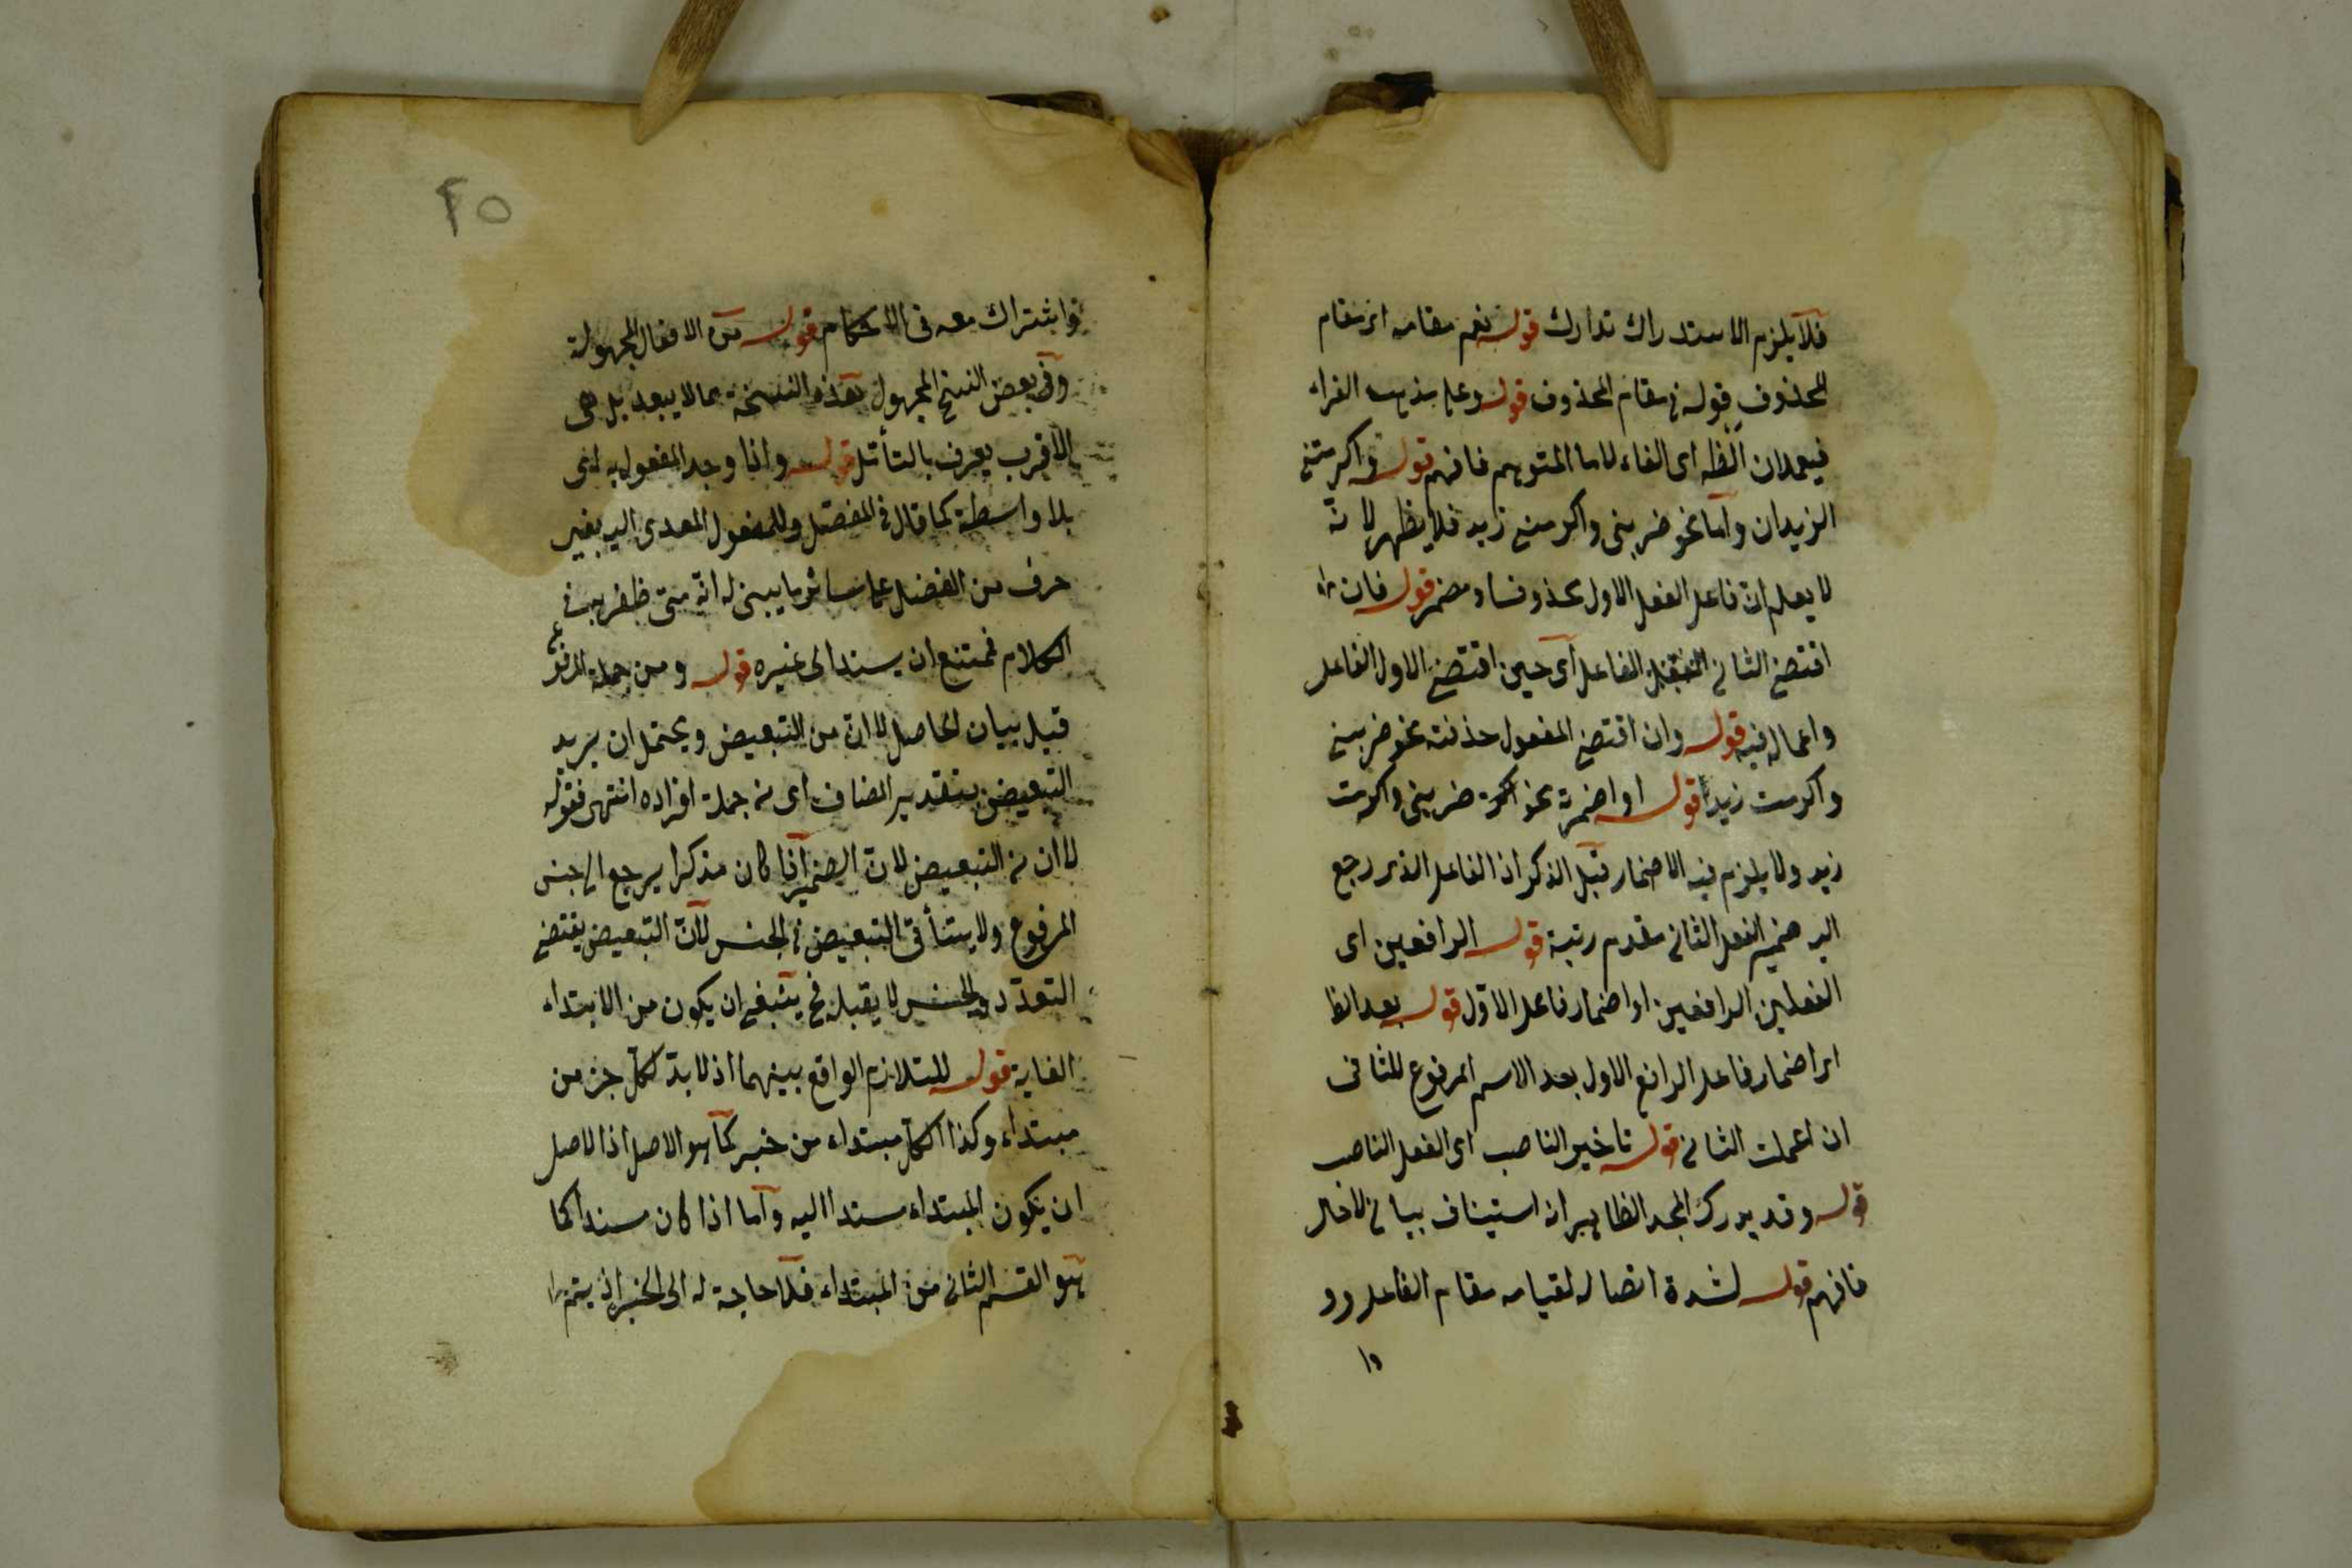 فلا يلزم الاستدراك تدارك قوله نعم مقامه اى مقام
المحذوف قوله فى مقام المحذوف قوله وعلى مذهب الفراء
فيعمدان الظ اى الفاء لا ما المتوهم فافهم قوله واكرمتنى
الزيدان واما نحو ضربنى واكرمنى زيد فلا يظهر لانه
لا يعلم ان فاعل الفعل الاول محذوف او مضمر قوله فان
اقتضى الثانى الفعل الفاعل اى حين اقتضى الاول الفاعل
واعماله فيه قوله وان اقتضى المفعول حذفته نحو ضربنى
واكرمت زيدا قوله او اضمرته نحو ضربنى واكرمت
زيد ولا يلزم فيه الاضمار قبل الذكر اذ الفاعل الذى رجع
اليه ضمير الفعل الثانى مقدم رتبة قوله الرافعين اى
الفعلين الرافعين او اضمار فاعل الاول قوله بعد الظا
اى اضمار فاعل الرافع الاول بعد الاسم المرفوع للثانى
ان اعملت الثانى قوله تاخير الناصب اى الفعل الناصب
قوله وقد يدرك المجد الظاهر انه استيناف بيانى لا حال
فافهم قوله لشدة اتصاله لقيامه مقام الفاعل وو
وا
٢٥
واشتراك معه فى الاحكام قوله من الافعال المجهولة
وفى بعض النسخ المجهول هذه النسخة مما لا يبعد بل هى
الاقرب يعرف بالتأمل قوله واذا وجد المفعول به اى
بلا واسطة كما قال فى المفصل وللمفعول المعدى اليه بغير
حرف من الفضل على سائر ما يبنى له انه متى ظفر به فى
الكلام فممتنع ان يسند الى غيره قوله ومن جملة المرفوع
قيل بيان لحاصل لا ان من للتبعيض ويحتمل ان يريد
التبعيض بتقدير المضاف اى من جملة افراده انتهى فقوله
لا ان من التبعيض لان الضمير اذا كان مذكرا يرجع الى جنس
المرفوع ولا يتأتى التبعيض فى الجنس لان التبعيض يقتضى
التعدد والجنس لا يقبله فح ينبغى ان يكون من الابتداء
الغاية قوله للتلازم الواقع بينهما اذ لا بد لكل جزء من
مبتداء وكذا لكل مبتداء من خبر كما هو الاصل اذ الاصل
ان يكون المبتداء مسندا اليه واما اذا كان مسندا كما
هو القسم الثانى من المبتداء فلا حاجة له الى الخبر اذ يتم